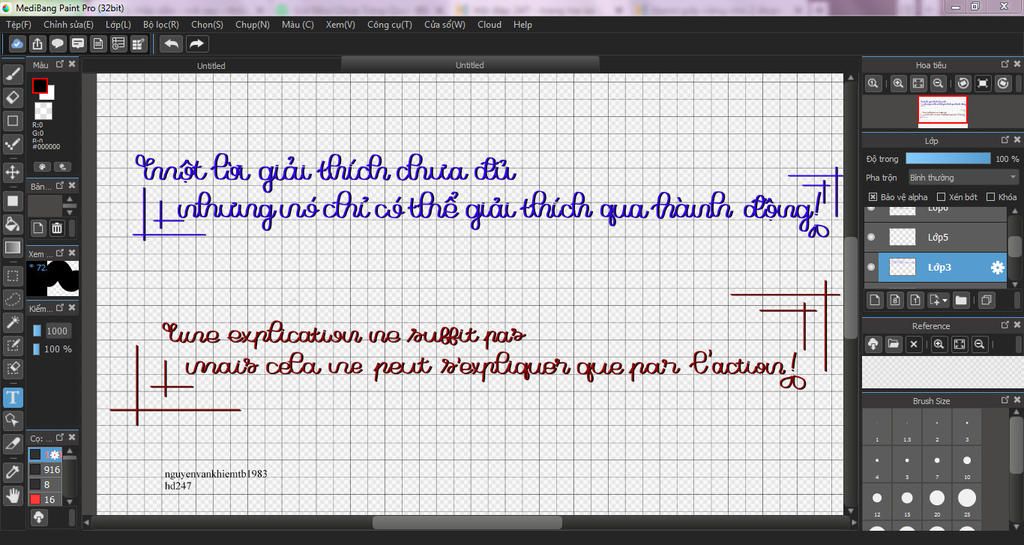 MediBang Paint Pro (32bit)
Tệp(F) Chỉnh sửa(E) Lớp(L) Bộ lọc(R) Chọn(S) Chụp(N) Màu (C) Xem(V) Công cụ(T) Cửa sổ(W) Cloud Help
Untitled Untitled
Màu
R:0
G:0
B:0
#000000
Bản...
Xem ...
* 72.
Kiểm...
1000
100 %
Cọ: ...
916
8
16
một lời giải thích chưa đủ
nhưng nó chỉ có thể giải thích qua hành động!
une explication ne suffit pas
mais cela ne peut s'expliquer que par l'action!
nguyenvankhiemtb1983
hd247
Hoa tiêu
Lớp
Độ trong 100 %
Pha trộn Bình thường
Bảo vệ alpha Xén bớt Khóa
Lớp6
Lớp5
Lớp3
Reference
Brush Size
1 1.5 2 3
4 5 7 10
12 15 20 25